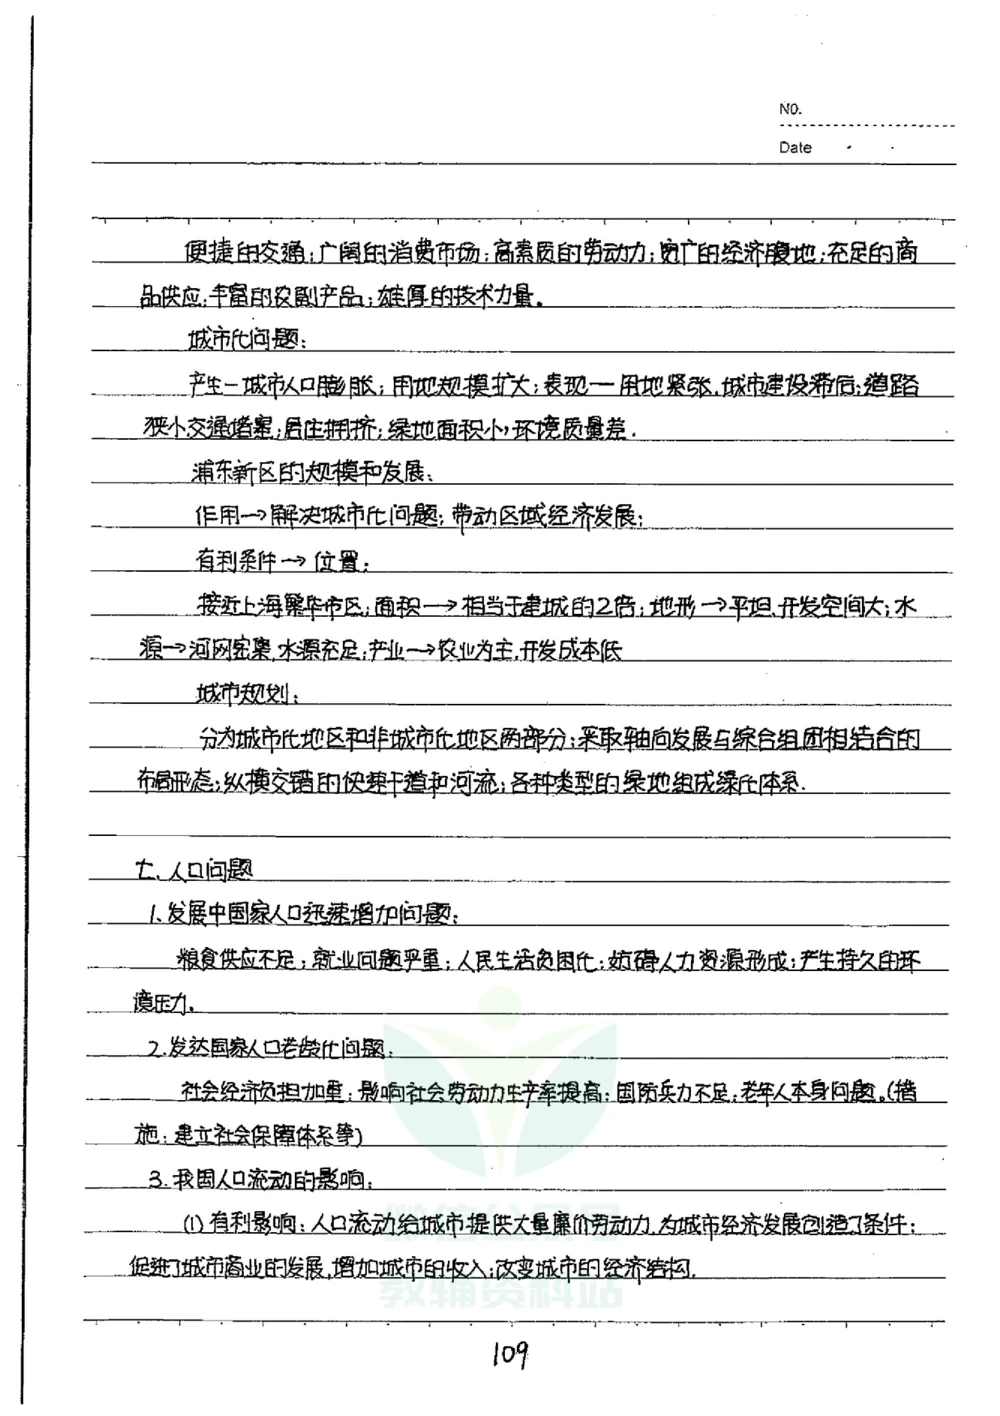 NO.
Date
便捷的交通；广阔的消费市场；高素质的劳动力；宽广的经济腹地；充足的商
品供应；丰富的农副产品；雄厚的技术力量。
城市化问题：
产生—城市人口膨胀；用地规模扩大；表现—用地紧张，城市建设滞后；道路
狭小交通堵塞；居住拥挤；绿地面积小，环境质量差.
浦东新区的规模和发展：
作用→解决城市化问题；带动区域经济发展；
有利条件→位置：
接近上海繁华市区；面积→相当于建城的2倍；地形→平坦，开发空间大；水
源→河网密集，水源充足；产业→农业为主，开发成本低
城市规划：
分为城市化地区和非城市化地区两部分；采取轴向发展与综合组团相结合的
布局形态；纵横交错的快速干道和河流；各种类型的绿地组成绿化体系.
七、人口问题
1.发展中国家人口迅速增加问题：
粮食供应不足；就业问题严重；人民生活贫困化；妨碍人力资源形成；产生持久的环
境压力。
2.发达国家人口老龄化问题：
社会经济负担加重；影响社会劳动力生产率提高；国防兵力不足；老年人本身问题。（措
施：建立社会保障体系等）
3.我国人口流动的影响：
(1)有利影响：人口流动给城市提供大量廉价劳动力，为城市经济发展创造了条件；
促进了城市商业的发展，增加城市的收入；改变城市的经济结构.
教辅资料站
109